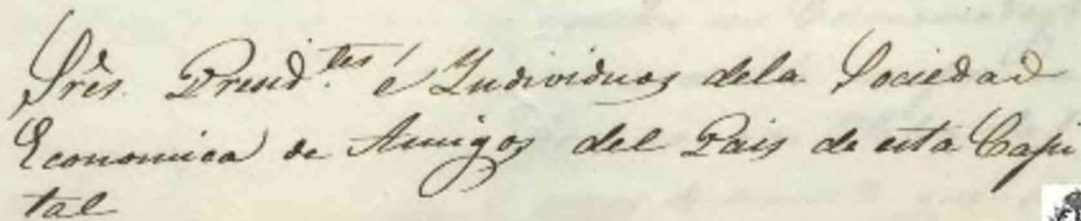 Sres. Presid.tes é Individuos dela Sociedad
Economica de Amigos del Pais de esta Capi
tal